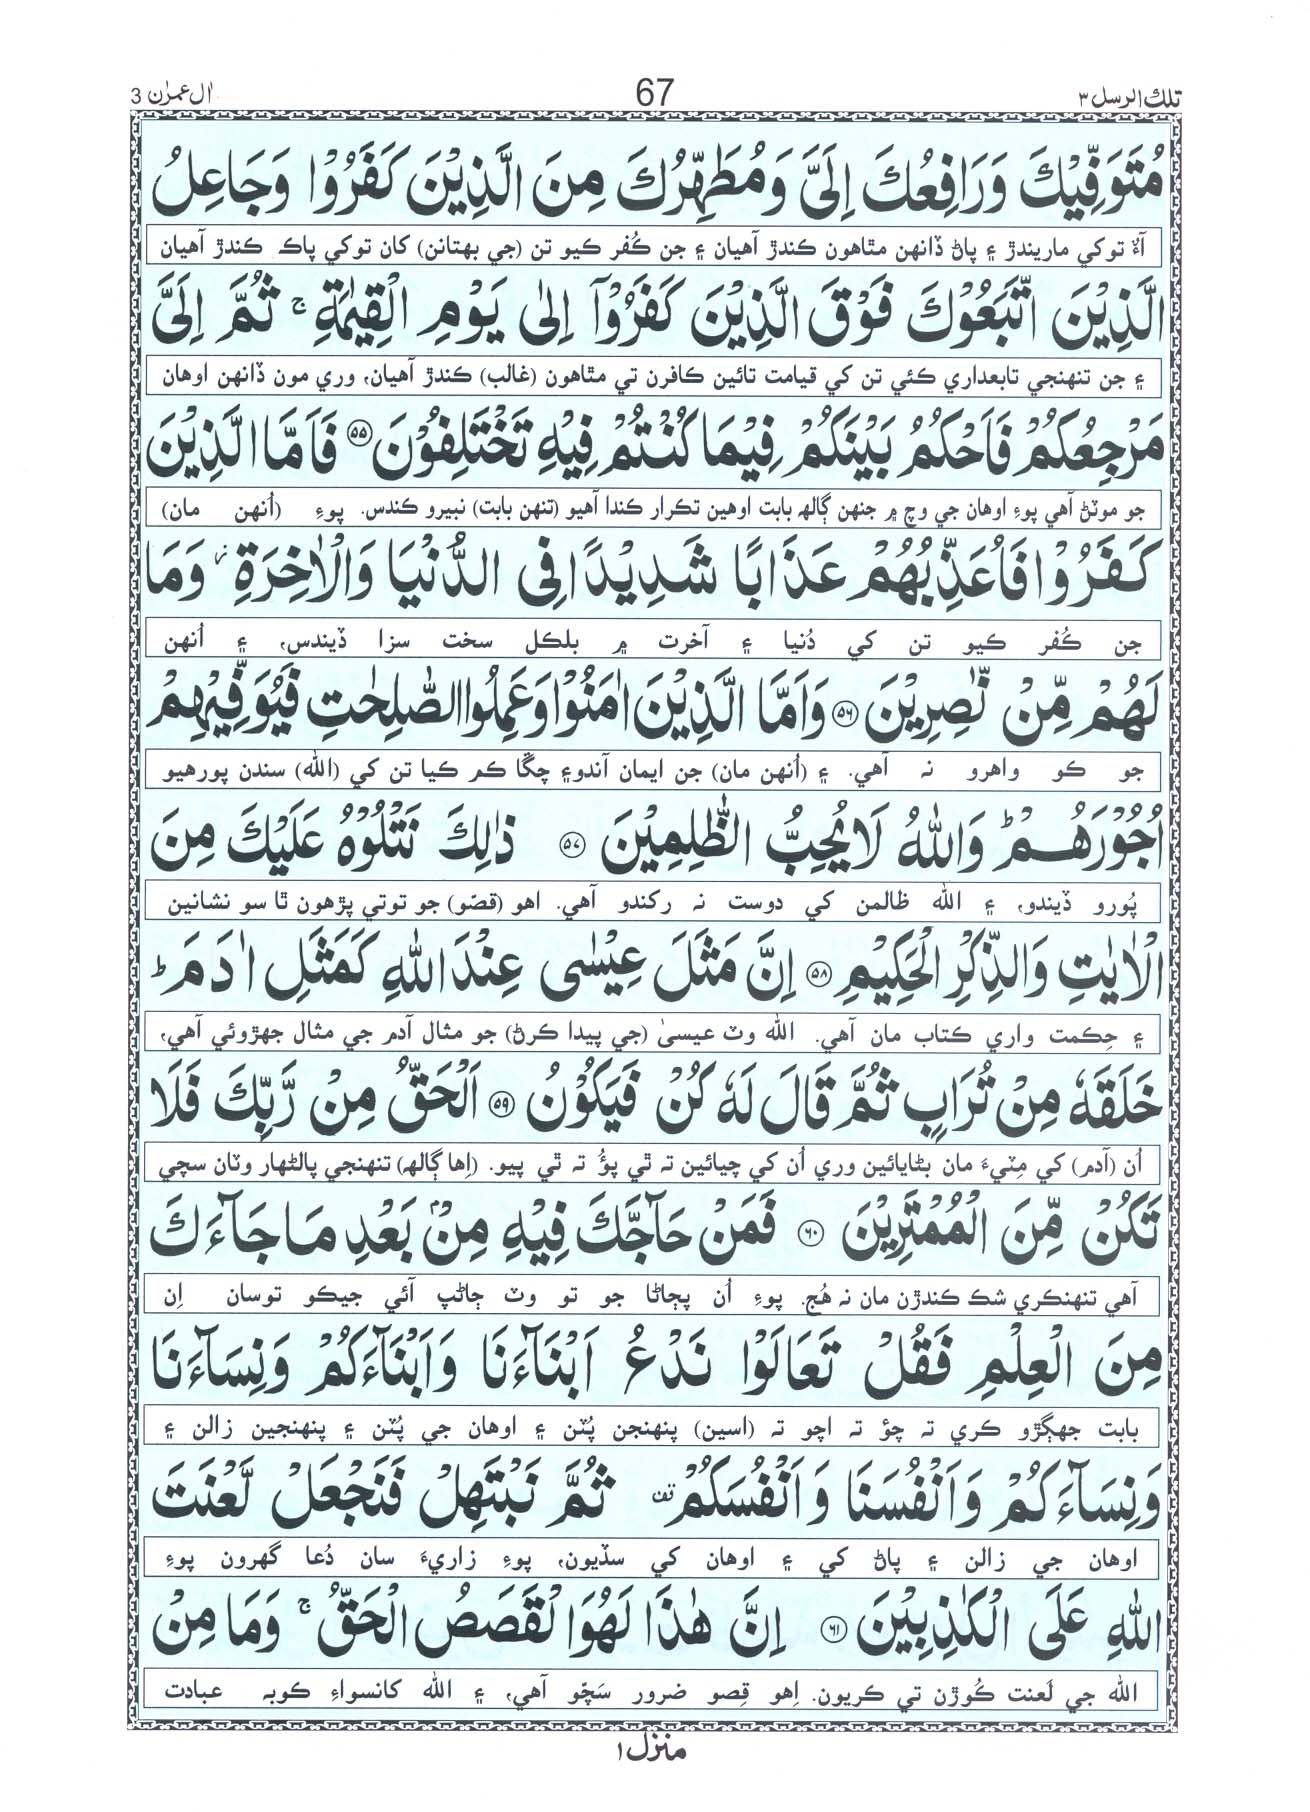 تلك الرسل ٣
67
اٰل عمرٰن 3
مُتَوَفِّيْكَ وَرَافِعُكَ اِلَيَّ وَمُطَهِّرُكَ مِنَ الَّذِيْنَ كَفَرُوْا وَجَاعِلُ
آءٌ توکي ماريندڙ ۽ پاڻ ڏانهن مٿاهون ڪندڙ آهيان ۽ جن ڪُفر ڪيو تن (جي بهتانن) کان توکي پاڪ ڪندڙ آهيان
الَّذِيْنَ اتَّبَعُوْكَ فَوْقَ الَّذِيْنَ كَفَرُوْٓا اِلٰى يَوْمِ الْقِيٰمَةِ ۚ ثُمَّ اِلَيَّ
۽ جن تنهنجي تابعداري ڪئي تن کي قيامت تائين ڪافرن تي مٿاهون (غالب) ڪندڙ آهيان، وري مون ڏانهن اوهان
مَرْجِعُكُمْ فَاَحْكُمُ بَيْنَكُمْ فِيْمَا كُنْتُمْ فِيْهِ تَخْتَلِفُوْنَ ۝٥٥ فَاَمَّا الَّذِيْنَ
جو موٽڻ آهي پوءِ اوهان جي وچ ۾ جنهن ڳالهہ بابت اوهين تڪرار ڪندا آهيو (تنهن بابت) نبيرو ڪندس. پوءِ (اُنهن مان)
كَفَرُوْا فَاُعَذِّبُهُمْ عَذَابًا شَدِيْدًا فِى الدُّنْيَا وَالْاٰخِرَةِ ۡ وَمَا
جن ڪُفر ڪيو تن کي دُنيا ۽ آخرت ۾ بلڪل سخت سزا ڏيندس، ۽ اُنهن
لَهُمْ مِّنْ نّٰصِرِيْنَ ۝٥٦ وَاَمَّا الَّذِيْنَ اٰمَنُوْا وَعَمِلُوا الصّٰلِحٰتِ فَيُوَفِّيْهِمْ
جو ڪو واهرو نہ آهي. ۽ (اُنهن مان) جن ايمان آندو۽ چڱا ڪم ڪيا تن کي (الله) سندن پورهيو
اُجُوْرَهُمْ ؕ وَاللّٰهُ لَا يُحِبُّ الظّٰلِمِيْنَ ۝٥٧ ذٰلِكَ نَتْلُوْهُ عَلَيْكَ مِنَ
پُورو ڏيندو، ۽ الله ظالمن کي دوست نہ رکندو آهي. اهو (قصّو) جو توتي پڙهون ٿا سو نشانين
الْاٰيٰتِ وَالذِّكْرِ الْحَكِيْمِ ۝٥٨ اِنَّ مَثَلَ عِيْسٰى عِنْدَ اللّٰهِ كَمَثَلِ اٰدَمَ ؕ
۽ حِڪمت واري ڪتاب مان آهي. الله وٽ عيسىٰ (جي پيدا ڪرڻ) جو مثال آدم جي مثال جهڙوئي آهي،
خَلَقَهٗ مِنْ تُرَابٍ ثُمَّ قَالَ لَهٗ كُنْ فَيَكُوْنُ ۝٥٩ اَلْحَقُّ مِنْ رَّبِّكَ فَلَا
اُن (آدم) کي مِٽيءَ مان بڻايائين وري اُن کي چيائين تہ ٿي پؤُ تہ ٿي پيو. (اِها ڳالهہ) تنهنجي پالڻهار وٽان سچي
تَكُنْ مِّنَ الْمُمْتَرِيْنَ ۝٦٠ فَمَنْ حَآجَّكَ فِيْهِ مِنْۢ بَعْدِ مَا جَآءَكَ
آهي تنهنڪري شڪ ڪندڙن مان نہ هُج. پوءِ اُن پڄاڻا جو تو وٽ ڄاڻپ آئي جيڪو توسان اِن
مِنَ الْعِلْمِ فَقُلْ تَعَالَوْا نَدْعُ اَبْنَآءَنَا وَاَبْنَآءَكُمْ وَنِسَآءَنَا
بابت جهڳڙو ڪري تہ چؤ تہ اچو تہ (اسين) پنهنجن پُٽن ۽ اوهان جي پُٽن ۽ پنهنجين زالن ۽
وَنِسَآءَكُمْ وَاَنْفُسَنَا وَاَنْفُسَكُمْ ۫ ثُمَّ نَبْتَهِلْ فَنَجْعَلْ لَّعْنَتَ
اوهان جي زالن ۽ پاڻ کي ۽ اوهان کي سڏيون، پوءِ زاريءَ سان دُعا گهرون پوءِ
اللّٰهِ عَلَى الْكٰذِبِيْنَ ۝٦١ اِنَّ هٰذَا لَهُوَ الْقَصَصُ الْحَقُّ ۚ وَمَا مِنْ
الله جي لَعنت ڪُوڙن تي ڪريون. اِهو قِصو ضرور سَچّو آهي، ۽ الله کانسواءِ ڪوبہ عبادت
منزل ١